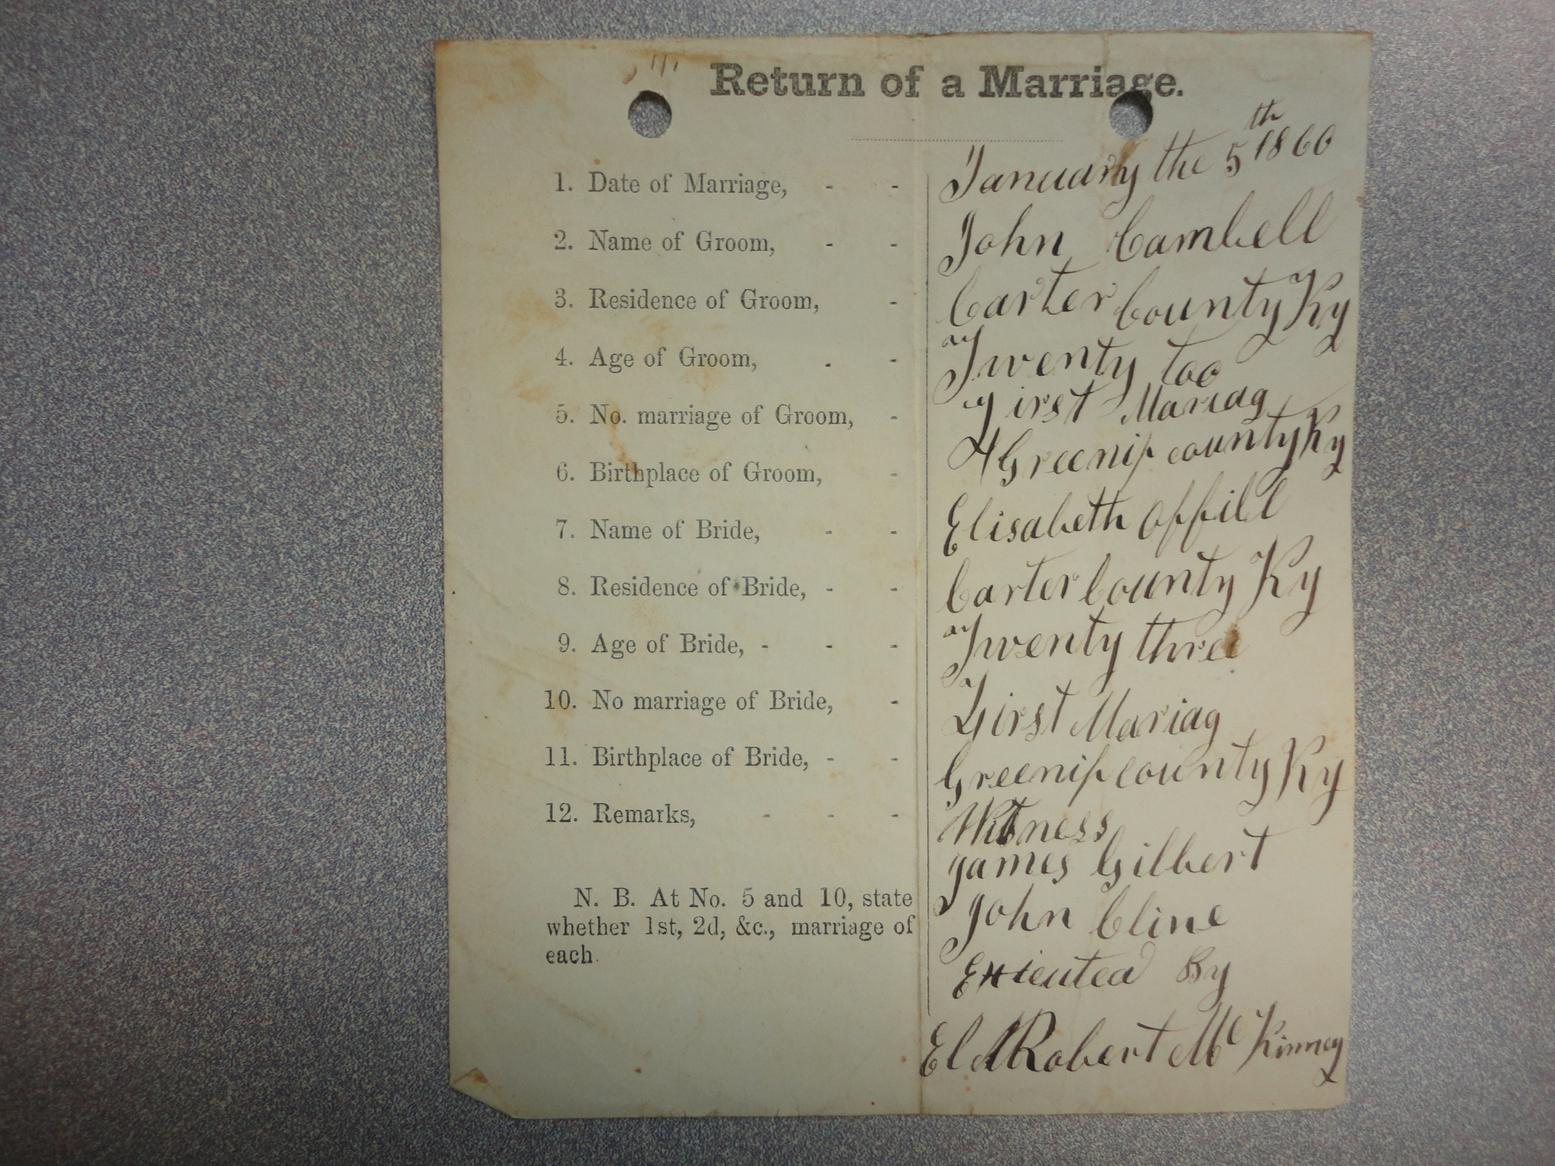 Return of a Marriage.
1. Date of Marriage, - - January the 5th 1860
2. Name of Groom, - - John Cambell
3. Residence of Groom, - Carter County Ky
4. Age of Groom, - - Twenty too
5. No. marriage of Groom, - First Mariag
6. Birthplace of Groom, - Greenip county Ky
7. Name of Bride, - - Elisabeth Offill
8. Residence of Bride, - - Carter County Ky
9. Age of Bride, - - - Twenty three
10. No marriage of Bride, - First Mariag
11. Birthplace of Bride, - - Greenip county Ky
12. Remarks, - - - Witness
James Gilbert
N. B. At No. 5 and 10, state
whether 1st, 2d, &c., marriage of
each.
John Cline
Exicuted By
Eld Robert McKinney